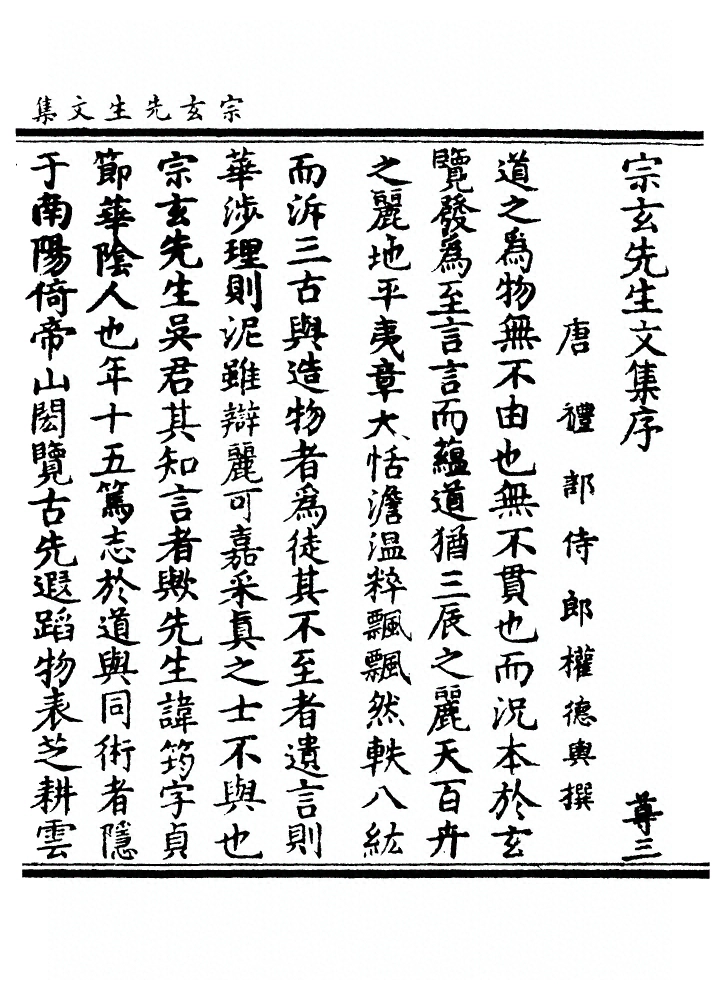 宗玄先生文集
宗玄先生文集序
尊三
唐禮部侍郎權德輿撰
道之爲物無不由也無不貫也而況本於玄
覽發爲至言言而蘊道猶三辰之麗天百卉
之麗地平夷章大恬澹温粹飄飄然軼八紘
而泝三古與造物者爲徒其不至者遺言則
華涉理則泥雖辯麗可嘉采真之士不與也
宗玄先生吳君其知言者歟先生諱筠字貞
節華陰人也年十五篤志於道與同術者隱
于南陽倚帝山閎覽古先遐蹈物表芝耕雲